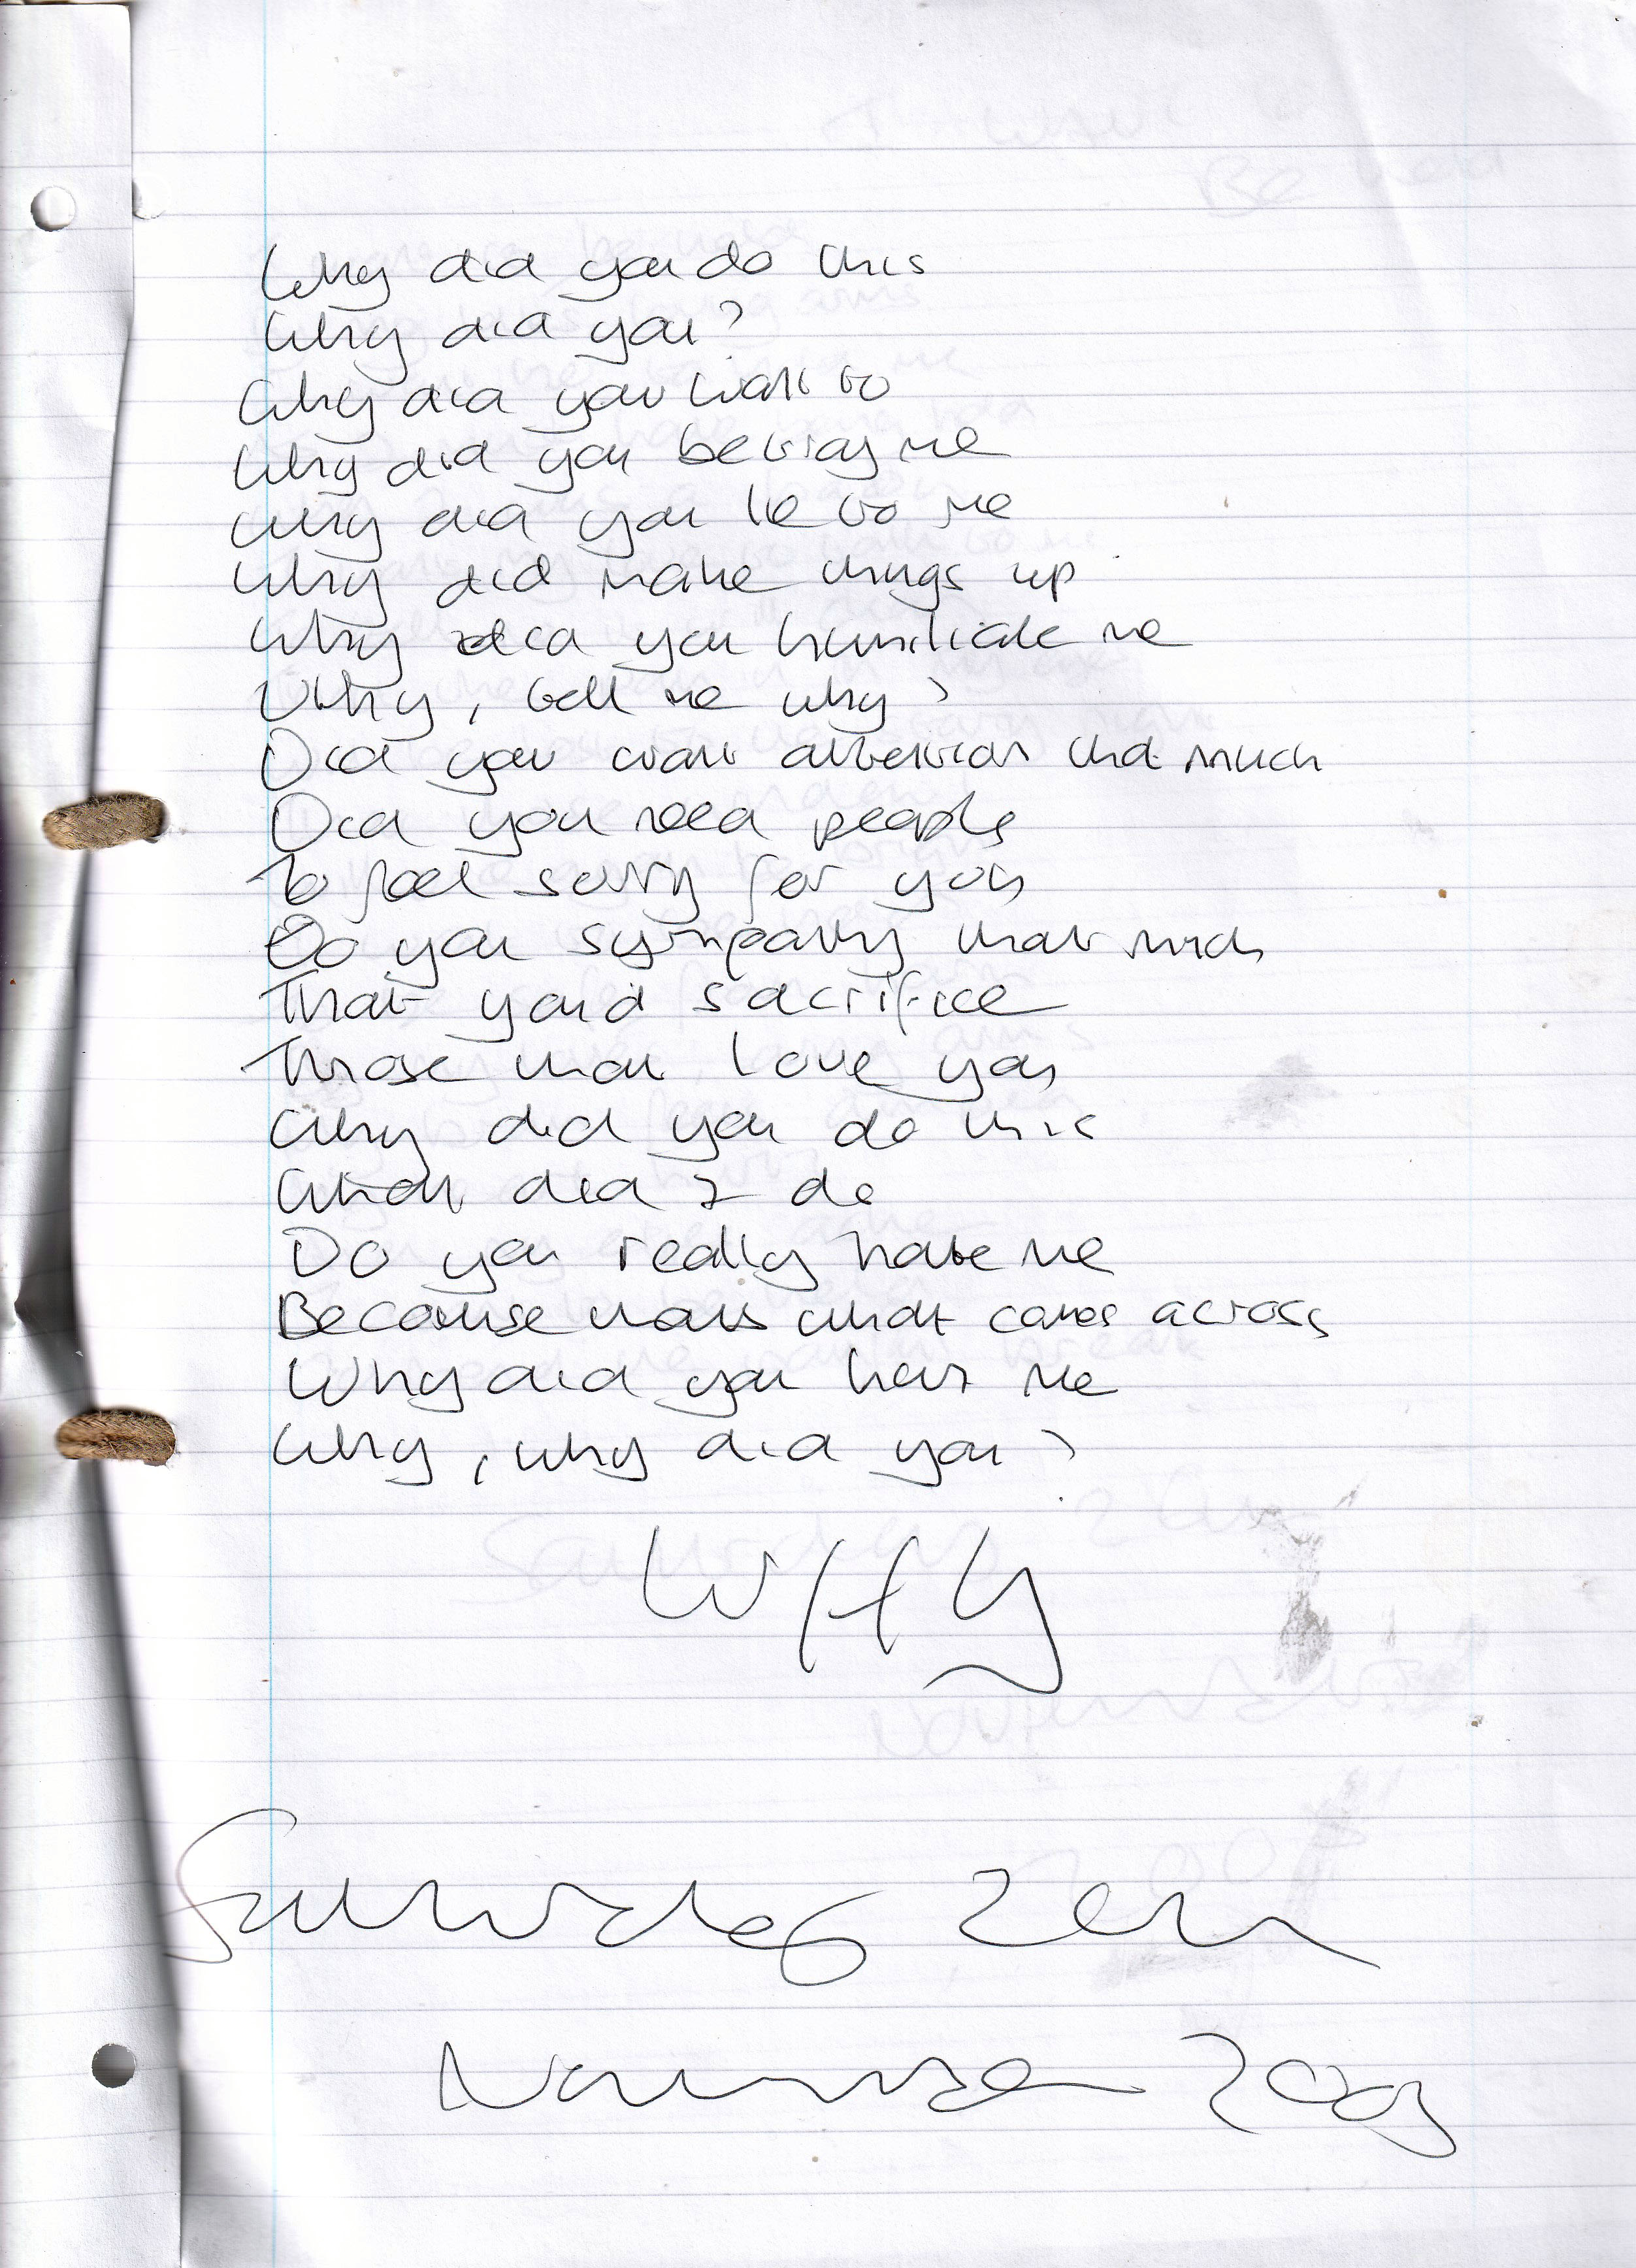 Why did you do this
Why did you?
Why did you want to
Why did you betray me
Why did you lie to me
Why did make things up
Why did you humiliate me
Why, tell me why?
Did you want attention that much
Did you need people
To feel sorry for you
Do you sympathy that much
That you'd sacrifice
Those that love you
Why did you do this
What did I do
Do you really hate me
Because thats what comes across
Why did you hurt me
Why, why did you?
WHY
Saturday
November 2009